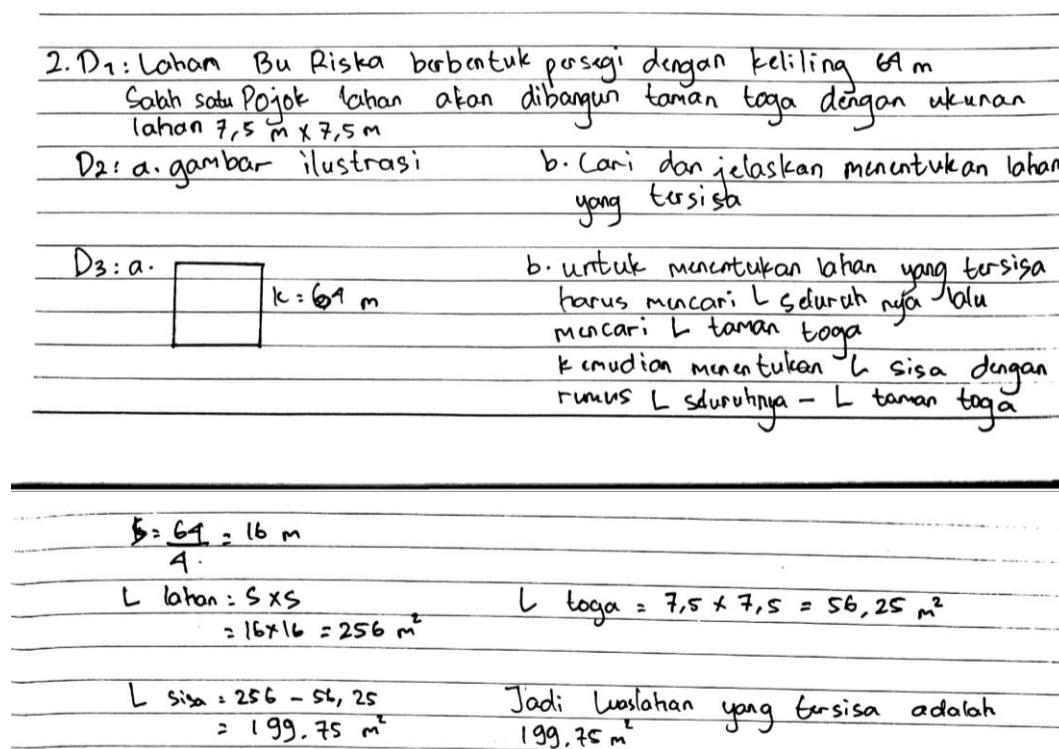 2. D1: Lahan Bu Riska berbentuk persegi dengan keliling 64 m
Salah satu Pojok lahan akan dibangun taman toga dengan ukuran
lahan 7,5 m x 7,5 m
D2: a. gambar ilustrasi
b. Cari dan jelaskan menentukan lahan
yang tersisa
D3: a.
k = 64 m
b. untuk menentukan lahan yang tersisa
harus mencari L seluruh nya lalu
mencari L taman toga
kemudian menentukan L sisa dengan
rumus L seluruhnya - L taman toga
S = 64/4 = 16 m
L lahan = S x S
= 16 x 16 = 256 m²
L toga = 7,5 x 7,5 = 56,25 m²
L sisa = 256 - 56,25
= 199.75 m²
Jadi Luaslahan yang tersisa adalah
199.75 m²